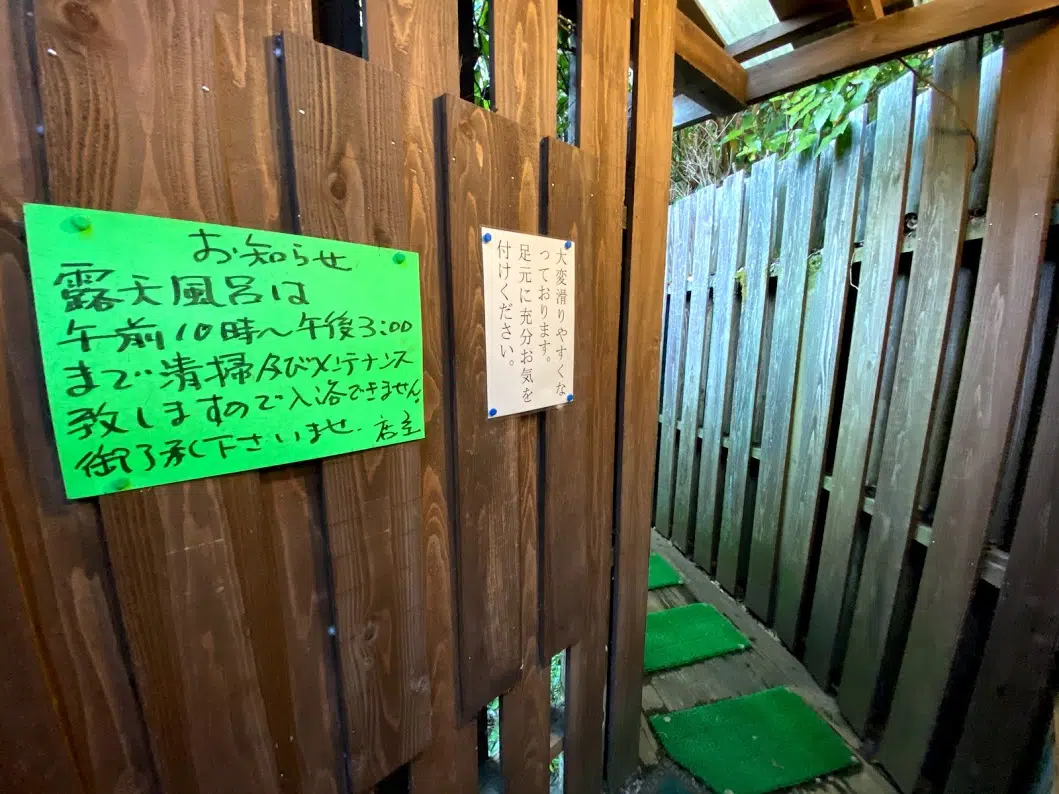 お知らせ
露天風呂は
午前10時〜午後3:00
まで清掃及びメンテナンス
致しますので入浴できません。
御了承下さいませ. 店主
大変滑りやすくな
っております。
足元に充分お気を
付けください。